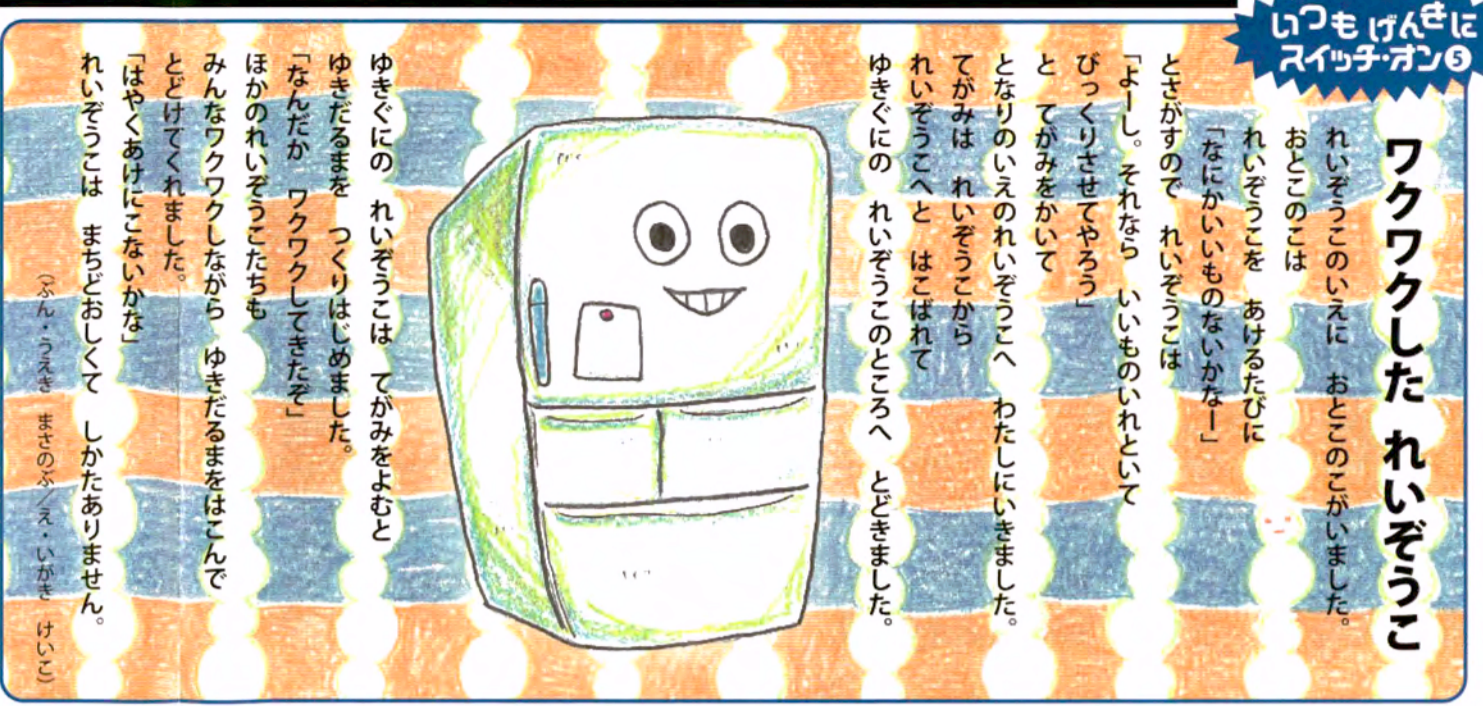 いつも げんきに
スイッチ・オン❺
ワクワクした れいぞうこ
れいぞうこのいえに おとこのこがいました。
おとこのこは
れいぞうこを あけるたびに
「なにかいいものないかなー」
とさがすので れいぞうこは
「よーし。それなら いいものいれといて
びっくりさせてやろう」
と てがみをかいて
となりのいえのれいぞうこへ わたしにいきました。
てがみは れいぞうこから
れいぞうこへと はこばれて
ゆきぐにの れいぞうこのところへ とどきました。
ゆきぐにの れいぞうこは てがみをよむと
ゆきだるまを つくりはじめました。
「なんだか ワクワクしてきたぞ」
ほかのれいぞうこたちも
みんなワクワクしながら ゆきだるまをはこんで
とどけてくれました。
「はやくあけにこないかな」
れいぞうこは まちどおしくて しかたありません。
(ぶん・うえき まさのぶ/え・いがき けいこ)